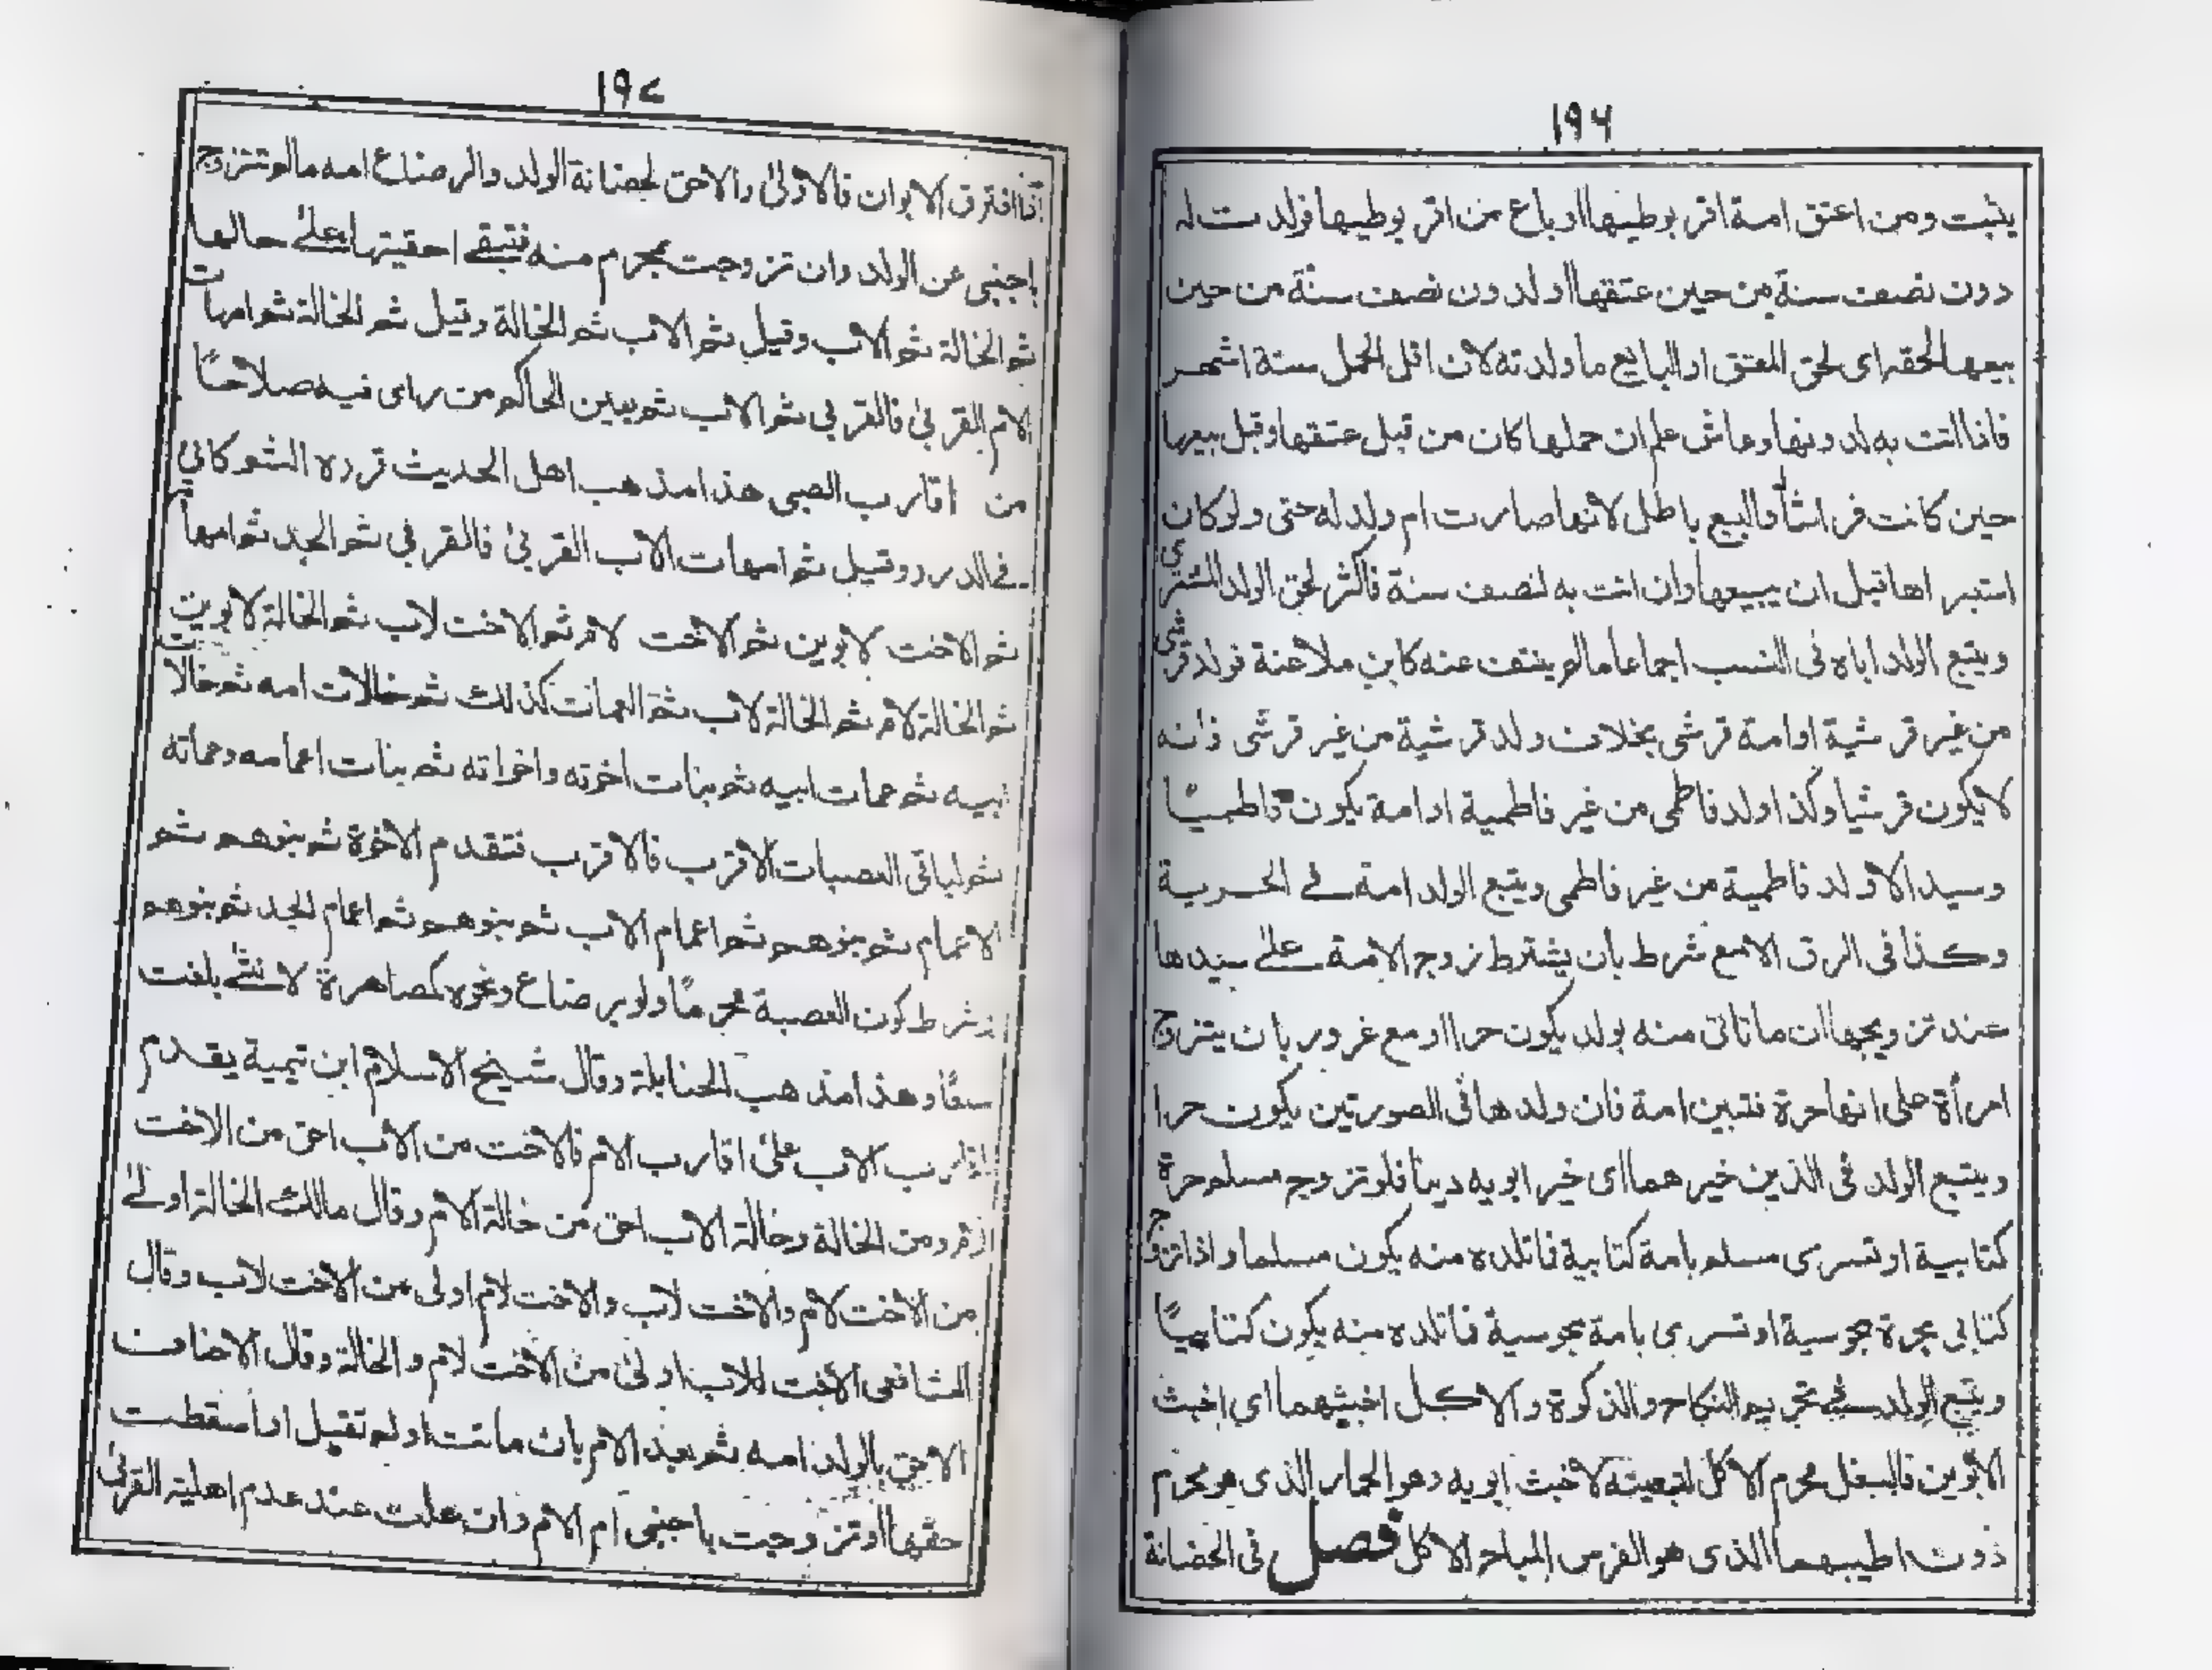 ١٩٦
يثبت ومن اعتق امة اقر بوطيها او باع من اقر بوطيها فولدت له
دون نصف سنة من حين عتقها او لدون نصف سنة من حين
بيعها لحقه اى لحق المعتق او البايع ما ولدته لان اقل الحمل ستة اشهر
فاذا اتت به لدونها وعاش علم ان حملها كان من قبل عتقها وقبل بيعها
حين كانت فراشا والبيع باطل لانها صارت ام ولد له حتى ولو كان
استبراها قبل ان يبيعها وان اتت به لنصف سنة فاكثر لحق الولد المشتري
ويتبع الولد اباه فى النسب اجماعا مالم ينتف عنه كابن ملاعنة فولد قرشي
من غير قرشية او امة قرشى بخلاف ولد قرشية من غير قرشى فانه
لا يكون قرشيا وكذا ولد فاطمى من غير فاطمية او امة يكون فاطميا
وسيدا لا ولد فاطمية من غير فاطمى ويتبع الولد امه فے الحرية
وكذا فى الرق الا مع شرط بان يشترط زوج الامة علے سيدها
عند تزويجها ان ما تاتى منه بولد يكون حرا او مع غرور بان يتزوج
امرأة على انها حرة فتبين امة فان ولدها فى الصورتين يكون حرا
ويتبع الولد فى الدين خيرهما اى خير ابويه دينا فلو تزوج مسلم حرة
كتابية او تسرى مسلم بامة كتابية فما تلده منه يكون مسلما واذا تزوج
كتابى بحرة مجوسية او تسرى بامة مجوسية فما تلده منه يكون كتابيا
ويتبع الولد فے تحريم النكاح والذكوة والاكل اخبثهما اى اخبث
الابوين فالبغل محرم الاكل لتبعيته لاخبث ابويه وهو الحمار الذى هو محرم
دون اطيبهما الذى هو الفرس المباح الاكل فصل فى الحضانة
١٩٧
اذا افترق الابوان فالاولى والاحق لحضانة الولد والرضاع امه مالم تتزوج
باجنبى عن الولد وان تزوجت بمحرم منه فتبقے احقيتها علے حالها
ثم الخالة ثم الاب وقيل ثم الاب ثم الخالة وقيل ثم الخالة ثم امهات
الام القربى فالقربى ثم الاب ثم يعين الحاكم من راى فيه صلاحا
من اقارب الصبى هذا مذهب اهل الحديث قرره الشوكاني
فے الدرر وقيل ثم امهات الاب القربى فالقربى ثم الجد ثم امهاته
ثم الاخت لابوين ثم الاخت لام ثم الاخت لاب ثم الخالة لابوين
ثم الخالة لام ثم الخالة لاب ثم العمات كذلك ثم خالات امه ثم خالات
ابيه ثم عمات ابيه ثم بنات اخوته واخواته ثم بنات اعمامه وعماته
ثم لباقى العصبات الاقرب فالاقرب فتقدم الاخوة ثم بنوهم ثم
الاعمام ثم بنوهم ثم اعمام الاب ثم بنوهم ثم اعمام الجد ثم بنوهم
وشرط كون العصبة محرما ولو برضاع ونحوه كمصاهرة لانثے بلغت
سبعا وهذا مذهب الحنابلة وقال شيخ الاسلام ابن تيمية يقدم
اقارب الاب على اقارب الام فالاخت من الاب احق من الاخت
للام ومن الخالة وخالة الاب احق من خالة الام وقال مالك الخالة اولے
من الاخت لام والاخت لاب والاخت لام اولى من الاخت لاب وقال
الشافعى الاخت للاب اولى من الاخت لام والخالة وقال الاحناف
الاحق بالولد امه ثم بعد الام بان ماتت او لم تقبل او اسقطت
حقها او تزوجت باجنبى ام الام وان علت عند عدم اهلية القربى